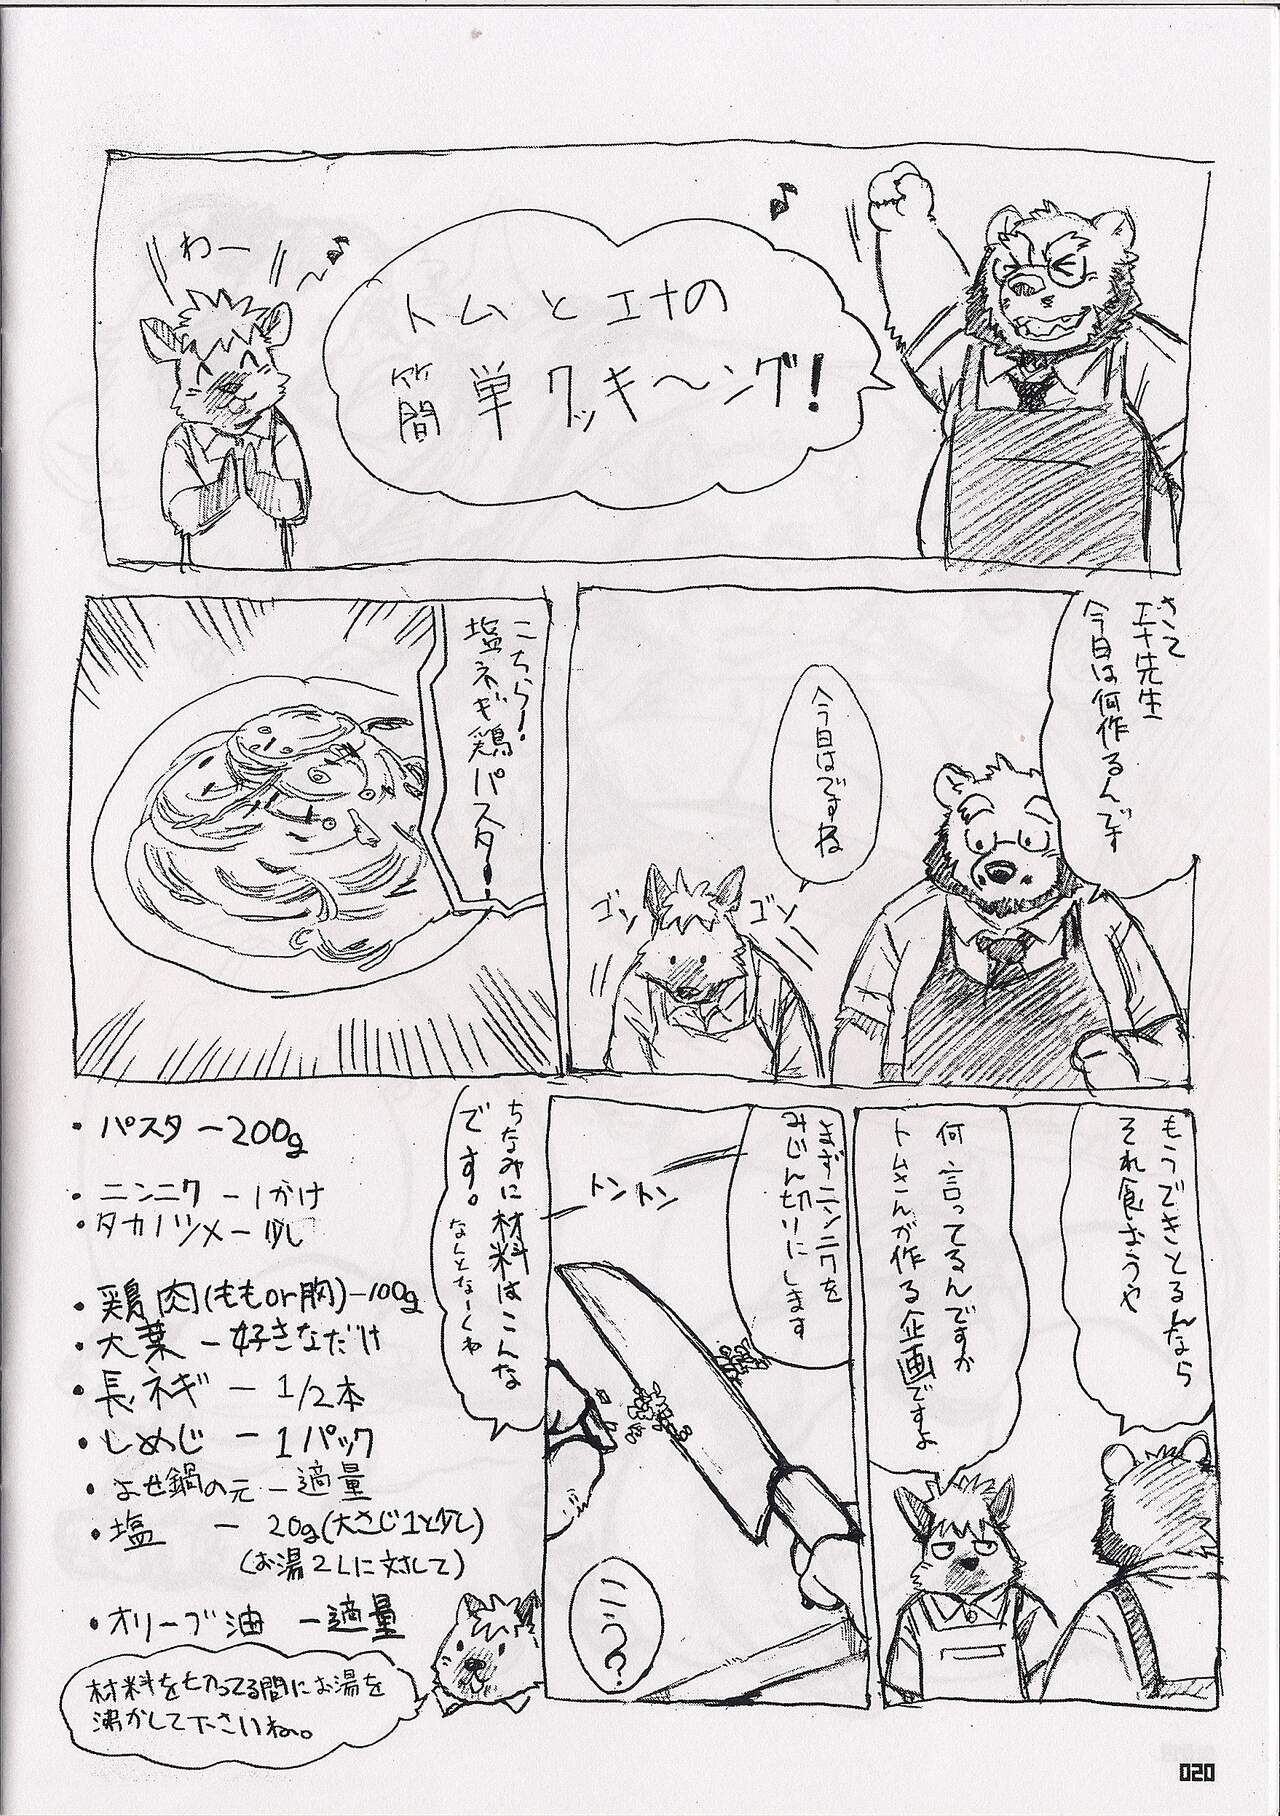 トムとエナの
簡単クッキ〜ング!
♪
わー
〜♪
さて
エナ先生
今日は何作るんです
今日はですね
ゴソ
ゴソ
こちら!
塩ネギ鶏パスター!
もうできとるんなら
それ食おうや
何言ってるんですか
トムさんが作る企画ですよ
まずニンニクを
みじん切りにします
トントン
こう?
ちなみに材料はこんな
です。なんとなーくね
・パスター200g
・ニンニク ー1かけ
・タカノツメー少し
・鶏肉(ももor胸)ー100g
・大葉 ー好きなだけ
・長ネギ ー 1/2本
・しめじ ー 1パック
・よせ鍋の元ー適量
・塩 ー 20g(大さじ1と少し)
(お湯2Lに対して)
・オリーブ油 ー適量
材料を切ってる間にお湯を
沸かして下さいね。
020